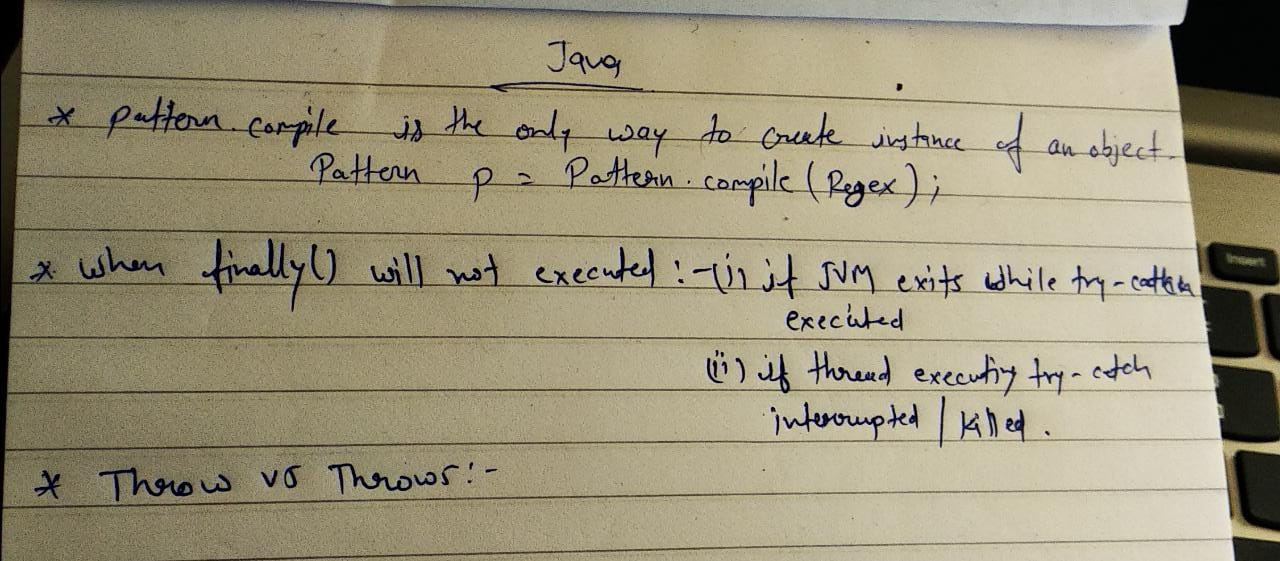 Java
* pattern.compile is the only way to create instance of an object.
Pattern p = Pattern.compile(Regex);
* when finally() will not executed :- (i) if JVM exits while try-catch
executed
(ii) if thread executing try-catch
interrupted / killed.
* Throw vs Throws:-